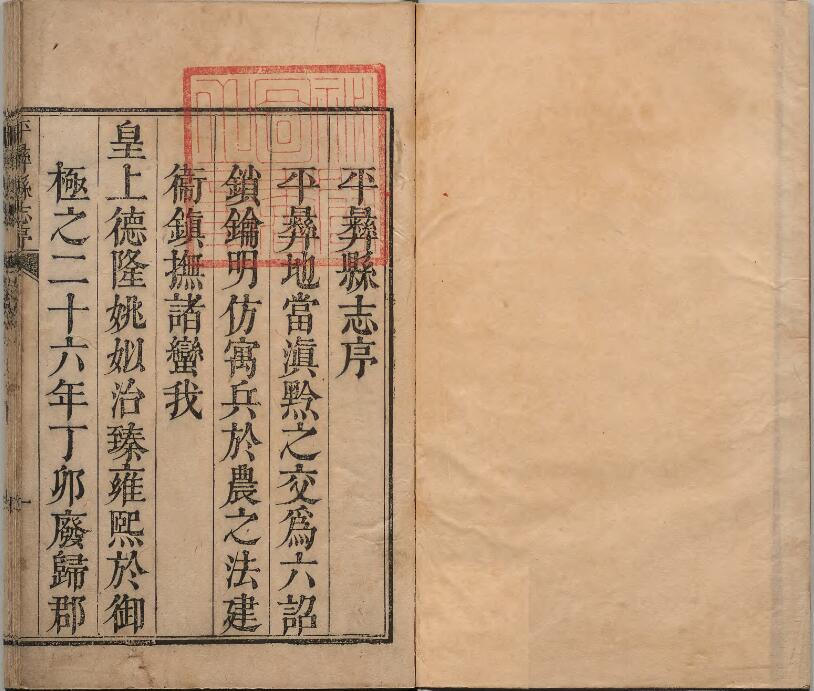 平彝縣志序
平彝地當滇黔之交爲六詔
鎖鑰明仿寓兵於農之法建
衞鎮撫諸蠻我
皇上德隆姚姒治臻雍熙於御
極之二十六年丁卯廢歸郡
平彝縣志序